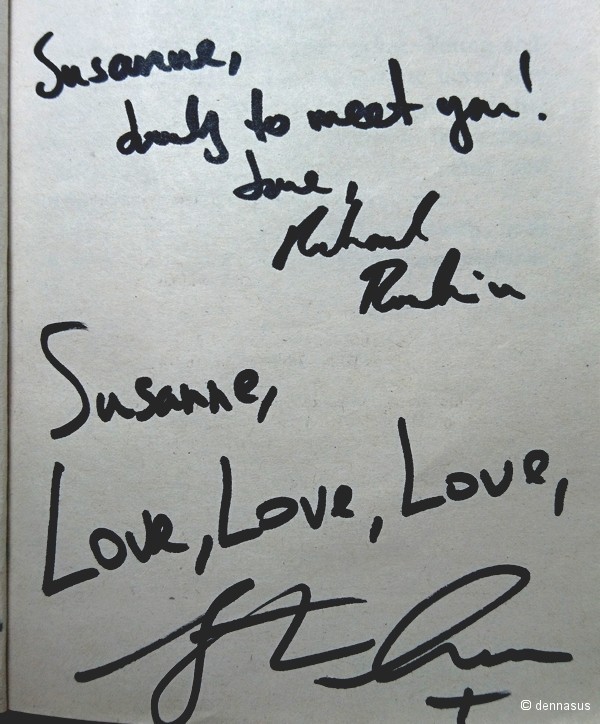 Susanne,
lovely to meet you!
Love,
Richard
Rankin
Susanne,
Love, Love, Love,
© dennasus